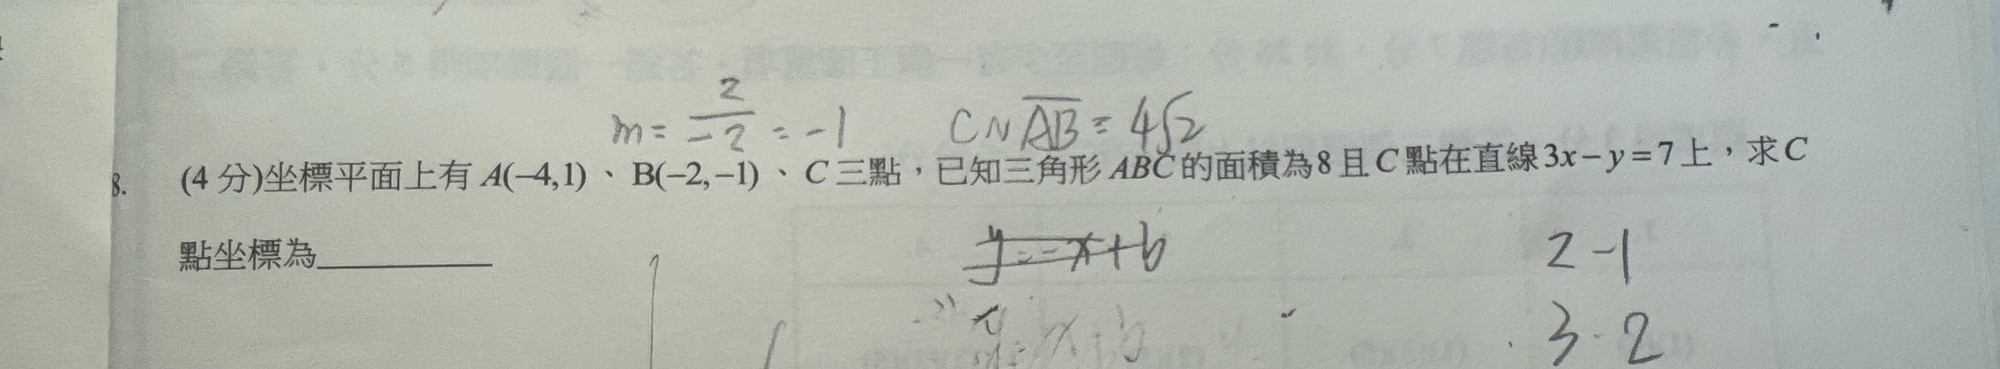 m = 2/-2 = -1    C N AB = 4√2
8. (4 分)坐標平面上有 A(−4,1)、B(−2,−1)、C 三點，已知三角形 ABC 的面積為8 且 C 點在直線 3x−y=7 上，求 C
點坐標為________
y=-x+b    2 -1
y=x+b    3 - 2